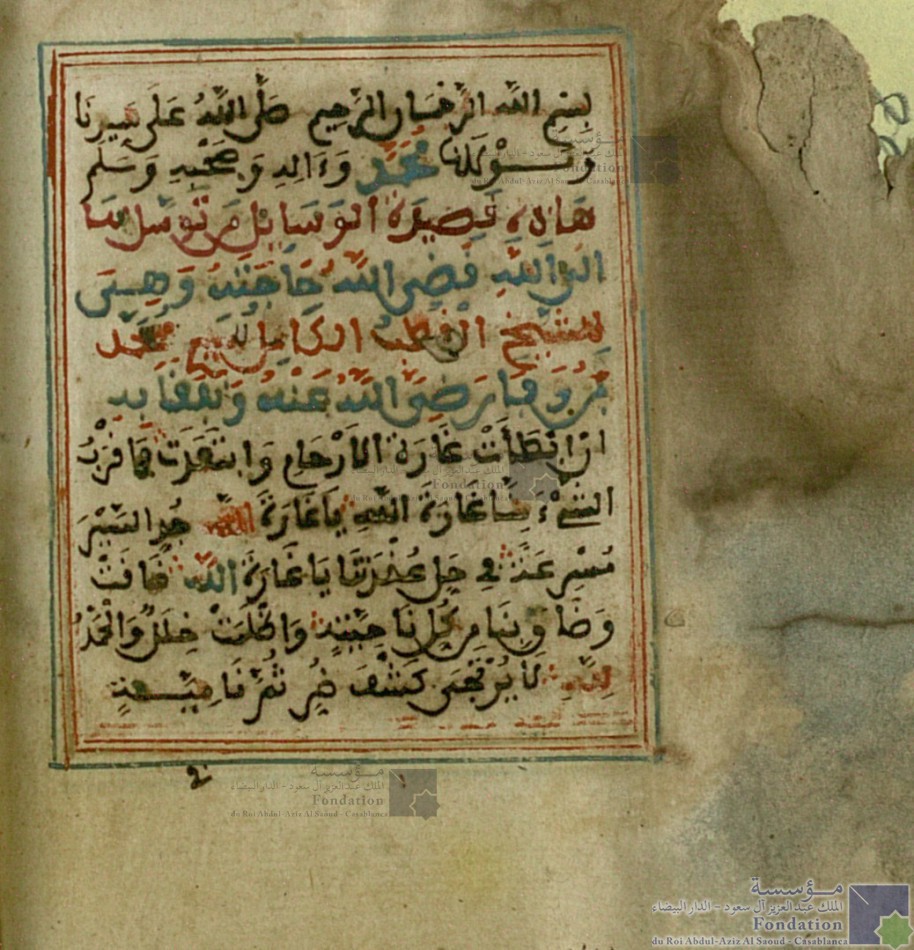 بِسْمِ اللَّهِ الرَّحْمَانِ الرَّحِيمِ صَلَّى اللَّهُ عَلَى سَيِّدِنَا
وَمَوْلَانَا مُحَمَّدٍ وَءَالِهِ وَصَحْبِهِ وَسَلَّمَ
هَاذِهِ قَصِيدَةُ الْوَسَايِلِ مَن تَوَسَّلَ بِهَا
إِلَى اللَّهِ قَضَى اللَّهُ حَاجَتَهُ وَهِيَ
لِلشَّيْخِ الْقُطْبِ الْكَامِلِ مُحَمَّد
رَضِيَ اللَّهُ عَنْهُ وَنَفَعَنَا بِهِ
إِنْ أَبْطَأَتْ غَارَةُ الْأَرْحَامِ وَابْتَعَدَتْ فَأَقْرَبُ
الشَّيْءِ مِنَّا غَارَةُ اللَّهِ يَا غَارَةَ اللَّهِ جِدِّ السَّيْرَ
مُسْرِعَةً فِي حَلِّ عُقْدَتِنَا يَا غَارَةَ اللَّهِ ضَاقَتْ
وَالْحَمْدُ
لِلَّهِ لَا يُرْتَجَى كَشْفُ ضُرٍّ
2
مؤسسة
الملك عبد العزيز آل سعود - الدار البيضاء
Fondation
du Roi Abdul-Aziz Al Saoud - Casablanca
مؤسسة
الملك عبد العزيز آل سعود - الدار البيضاء
Fondation
du Roi Abdul-Aziz Al Saoud - Casablanca